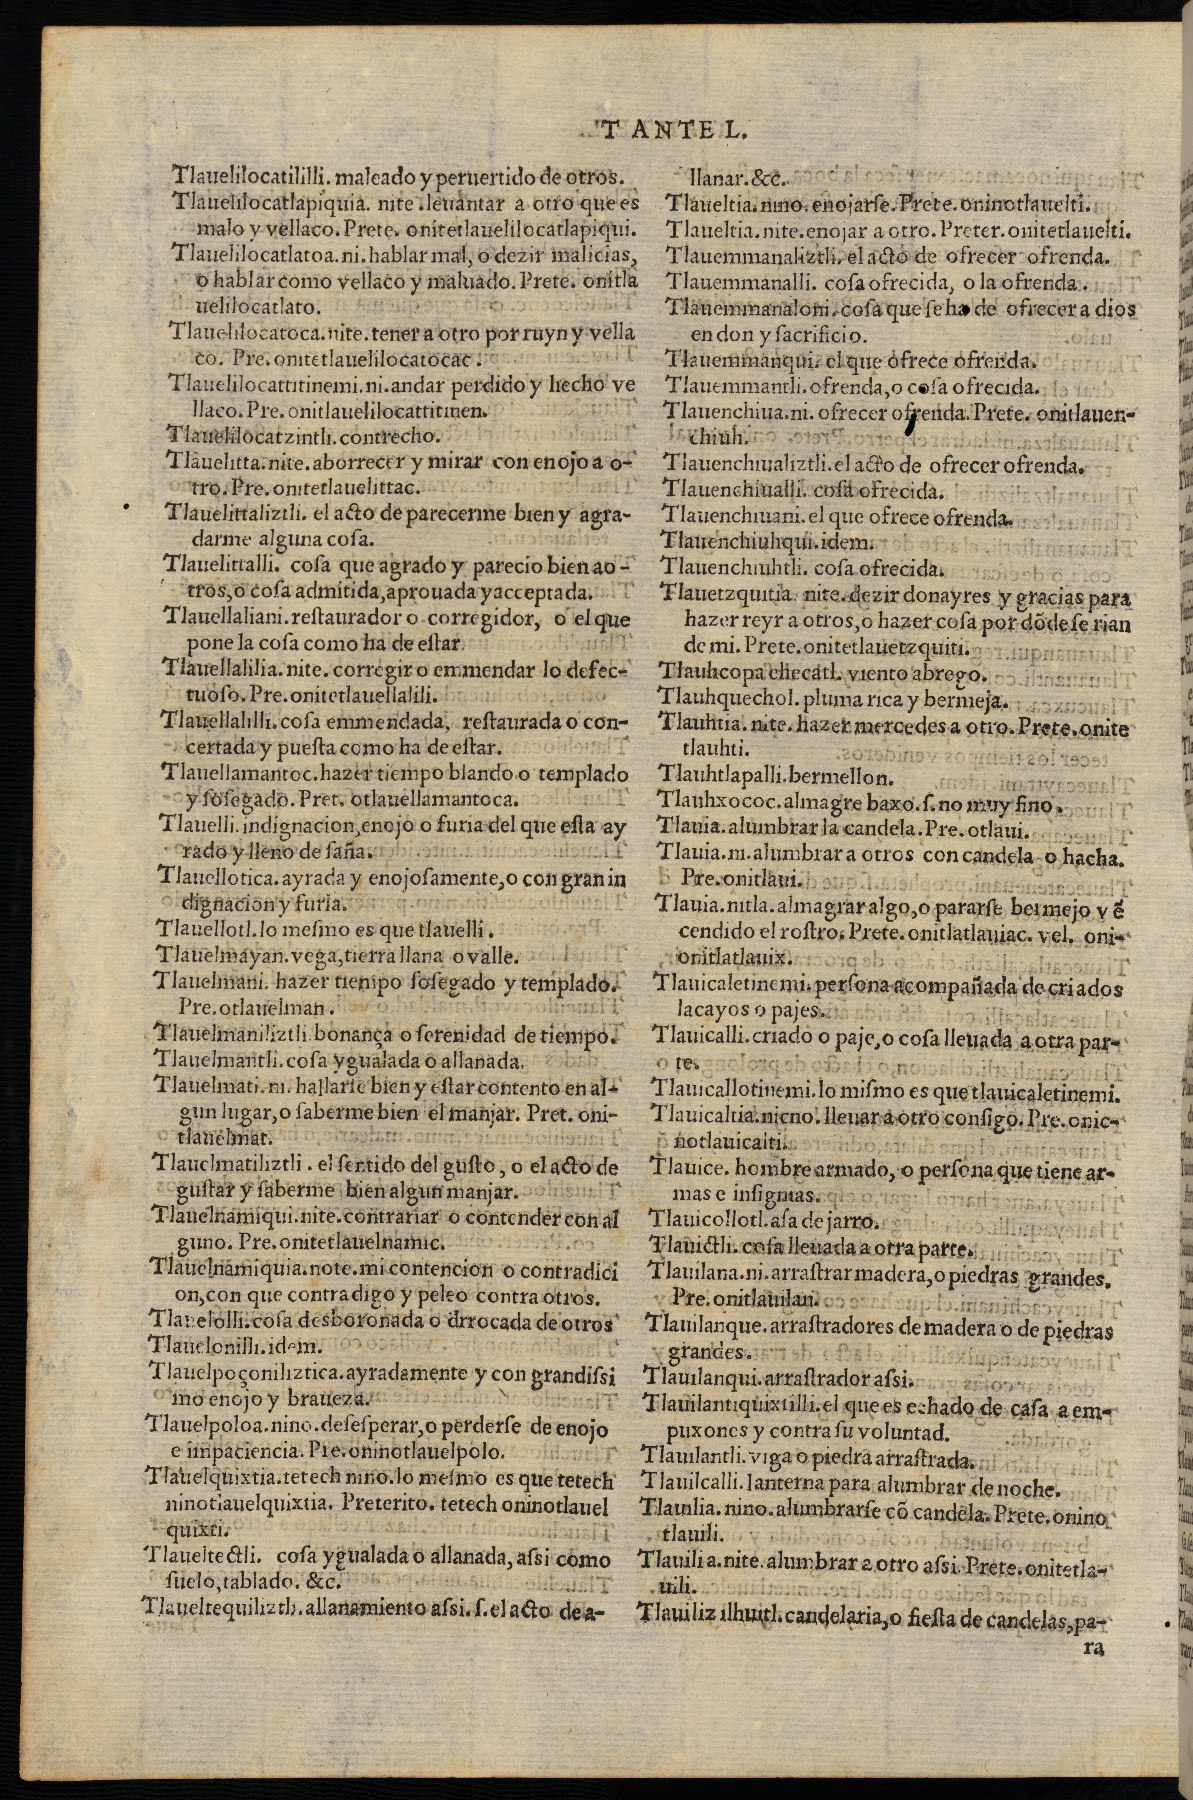 T ANTE L.
Tlauelilocatililli. maleado y peruertido de otros.
Tlauelilocatlapiquia. nite. leuantar a otro que es
malo y vellaco. Prete. onitetlauelilocatlapiqui.
Tlauelilocatlatoa. ni. hablar mal, o dezir malicias,
o hablar como vellaco y maluado. Prete. onitla
uelilocatlato.
Tlauelilocatoca. nite. tener a otro por ruyn y vella
co. Pre. onitetlauelilocatocac.
Tlauelilocattitinemi. ni. andar perdido y hecho ve
llaco. Pre. onitlauelilocattitinen.
Tlauelilocatzintli. contrecho.
Tlauelitta. nite. aborrecer y mirar con enojo a o-
tro. Pre. onitetlauelittac.
Tlauelittaliztli. el acto de parecerme bien y agra-
darme alguna cosa.
Tlauelittalli. cosa que agrado y parecio bien a o-
tros, o cosa admitida, aprouada y acceptada.
Tlauellaliani. restaurador o corregidor, o el que
pone la cosa como ha de estar.
Tlauellalilia. nite. corregir o emmendar lo defec-
tuoso. Pre. onitetlauellalili.
Tlauellalilli. cosa emmendada, restaurada o con-
certada y puesta como ha de estar.
Tlauellamantoc. hazer tiempo blando o templado
y sosegado. Pret. otlauellamantoca.
Tlauelli. indignacion, enojo o furia del que esta ay
rado y lleno de saña.
Tlauellotica. ayrada y enojosamente, o con gran in
dignacion y furia.
Tlauellotl. lo mesmo es que tlauelli.
Tlauelmayan. vega, tierra llana o valle.
Tlauelmani. hazer tiempo sosegado y templado.
Pre. otlauelman.
Tlauelmaniliztli. bonança o serenidad de tiempo.
Tlauelmantli. cosa ygualada o allanada.
Tlauelmati. ni. hallarse bien y estar contento en al-
gun lugar, o saberme bien el manjar. Pret. oni-
tlauelmat.
Tlauelmatiliztli. el sentido del gusto, o el acto de
gustar y saberme bien algun manjar.
Tlauelnamiqui. nite. contrariar o contender con al
guno. Pre. onitetlauelnamic.
Tlauelnamiquia. note. mi contencion o contradici
on, con que contradigo y peleo contra otros.
Tlauelolli. cosa desboronada o drrocada de otros
Tlauelonilli. idem.
Tlauelpoçoniliztica. ayradamente y con grandissi
mo enojo y braueza.
Tlauelpoloa. nino. desesperar, o perderse de enojo
e impaciencia. Pre. oninotlauelpolo.
Tlauelquixtia. tetech nino. lo mesmo es que tetech
ninotlauelquixtia. Preterito. tetech oninotlauel
quixti.
Tlaueltectli. cosa ygualada o allanada, assi como
suelo, tablado. &c.
Tlaueltequiliztli. allanamiento assi. s. el acto de a-
llanar. &c.
Tlaueltia. nino. enojarse. Prete. oninotlauelti.
Tlaueltia. nite. enojar a otro. Preter. onitetlauelti.
Tlauemmanaliztli. el acto de ofrecer ofrenda.
Tlauemmanalli. cosa ofrecida, o la ofrenda.
Tlauemmanaloni. cosa que se ha de ofrecer a dios
en don y sacrificio.
Tlauemmanqui. el que ofrece ofrenda.
Tlauemmantli. ofrenda, o cosa ofrecida.
Tlauenchiua. ni. ofrecer ofrenda. Prete. onitlauen-
chiuh.
Tlauenchiualiztli. el acto de ofrecer ofrenda.
Tlauenchiualli. cosa ofrecida.
Tlauenchiuani. el que ofrece ofrenda.
Tlauenchiuhqui. idem.
Tlauenchiuhtli. cosa ofrecida.
Tlauetzquitia. nite. dezir donayres y gracias para
hazer reyr a otros, o hazer cosa por dõde se rian
de mi. Prete. onitetlauetzquiti.
Tlauhcopa ehecatl. viento abrego.
Tlauhquechol. pluma rica y bermeja.
Tlauhtia. nite. hazer mercedes a otro. Prete. onite
tlauhti.
Tlauhtlapalli. bermellon.
Tlauhxococ. almagre baxo. s. no muy fino.
Tlauia. alumbrar la candela. Pre. otlaui.
Tlauia. ni. alumbrar a otros con candela o hacha.
Pre. onitlaui.
Tlauia. nitla. almagrar algo, o pararse bermejo y ẽ
cendido el rostro. Prete. onitlatlauiac. vel. oni-
onitlatlauix.
Tlauicaletinemi. persona acompañada de criados
lacayos o pajes.
Tlauicalli. criado o paje, o cosa lleuada a otra par-
te.
Tlauicallotinemi. lo mismo es que tlauicaletinemi.
Tlauicaltia. nicno. lleuar a otro consigo. Pre. onic-
notlauicalti.
Tlauice. hombre armado, o persona que tiene ar-
mas e insignias.
Tlauicollotl. asa de jarro.
Tlauictli. cosa lleuada a otra parte.
Tlauilana. ni. arrastrar madera, o piedras grandes.
Pre. onitlauilan.
Tlauilanque. arrastradores de madera o de piedras
grandes.
Tlauilanqui. arrastrador assi.
Tlauilantiquixtilli. el que es echado de casa a em-
puxones y contra su voluntad.
Tlauilantli. viga o piedra arrastrada.
Tlauilcalli. lanterna para alumbrar de noche.
Tlauilia. nino. alumbrarse cõ candela. Prete. onino
tlauili.
Tlauilia. nite. alumbrar a otro assi. Prete. onitetla-
uili.
Tlauiliz ilhuitl. candelaria, o fiesta de candelas, pa-
ra